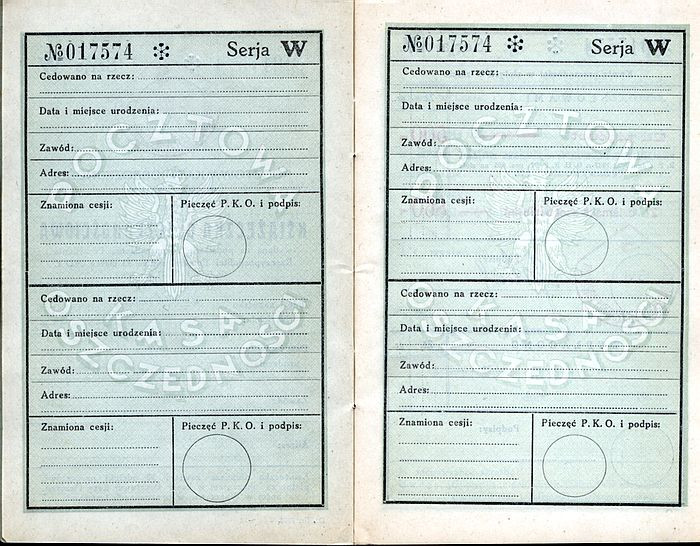 №017574 ✻ Serja W
Cedowano na rzecz:
Data i miejsce urodzenia:
Zawód:
Adres:
Znamiona cesji: Pieczęć P. K. O. i podpis:
Cedowano na rzecz:
Data i miejsce urodzenia:
Zawód:
Adres:
Znamiona cesji: Pieczęć P. K. O. i podpis:
POCZTOWA
KASA
OSZCZĘDNOŚCI
№017574 ✻ Serja W
Cedowano na rzecz:
Data i miejsce urodzenia:
Zawód:
Adres:
Znamiona cesji: Pieczęć P. K. O. i podpis:
Cedowano na rzecz:
Data i miejsce urodzenia:
Zawód:
Adres:
Znamiona cesji: Pieczęć P. K. O. i podpis:
POCZTOWA
KASA
OSZCZĘDNOŚCI